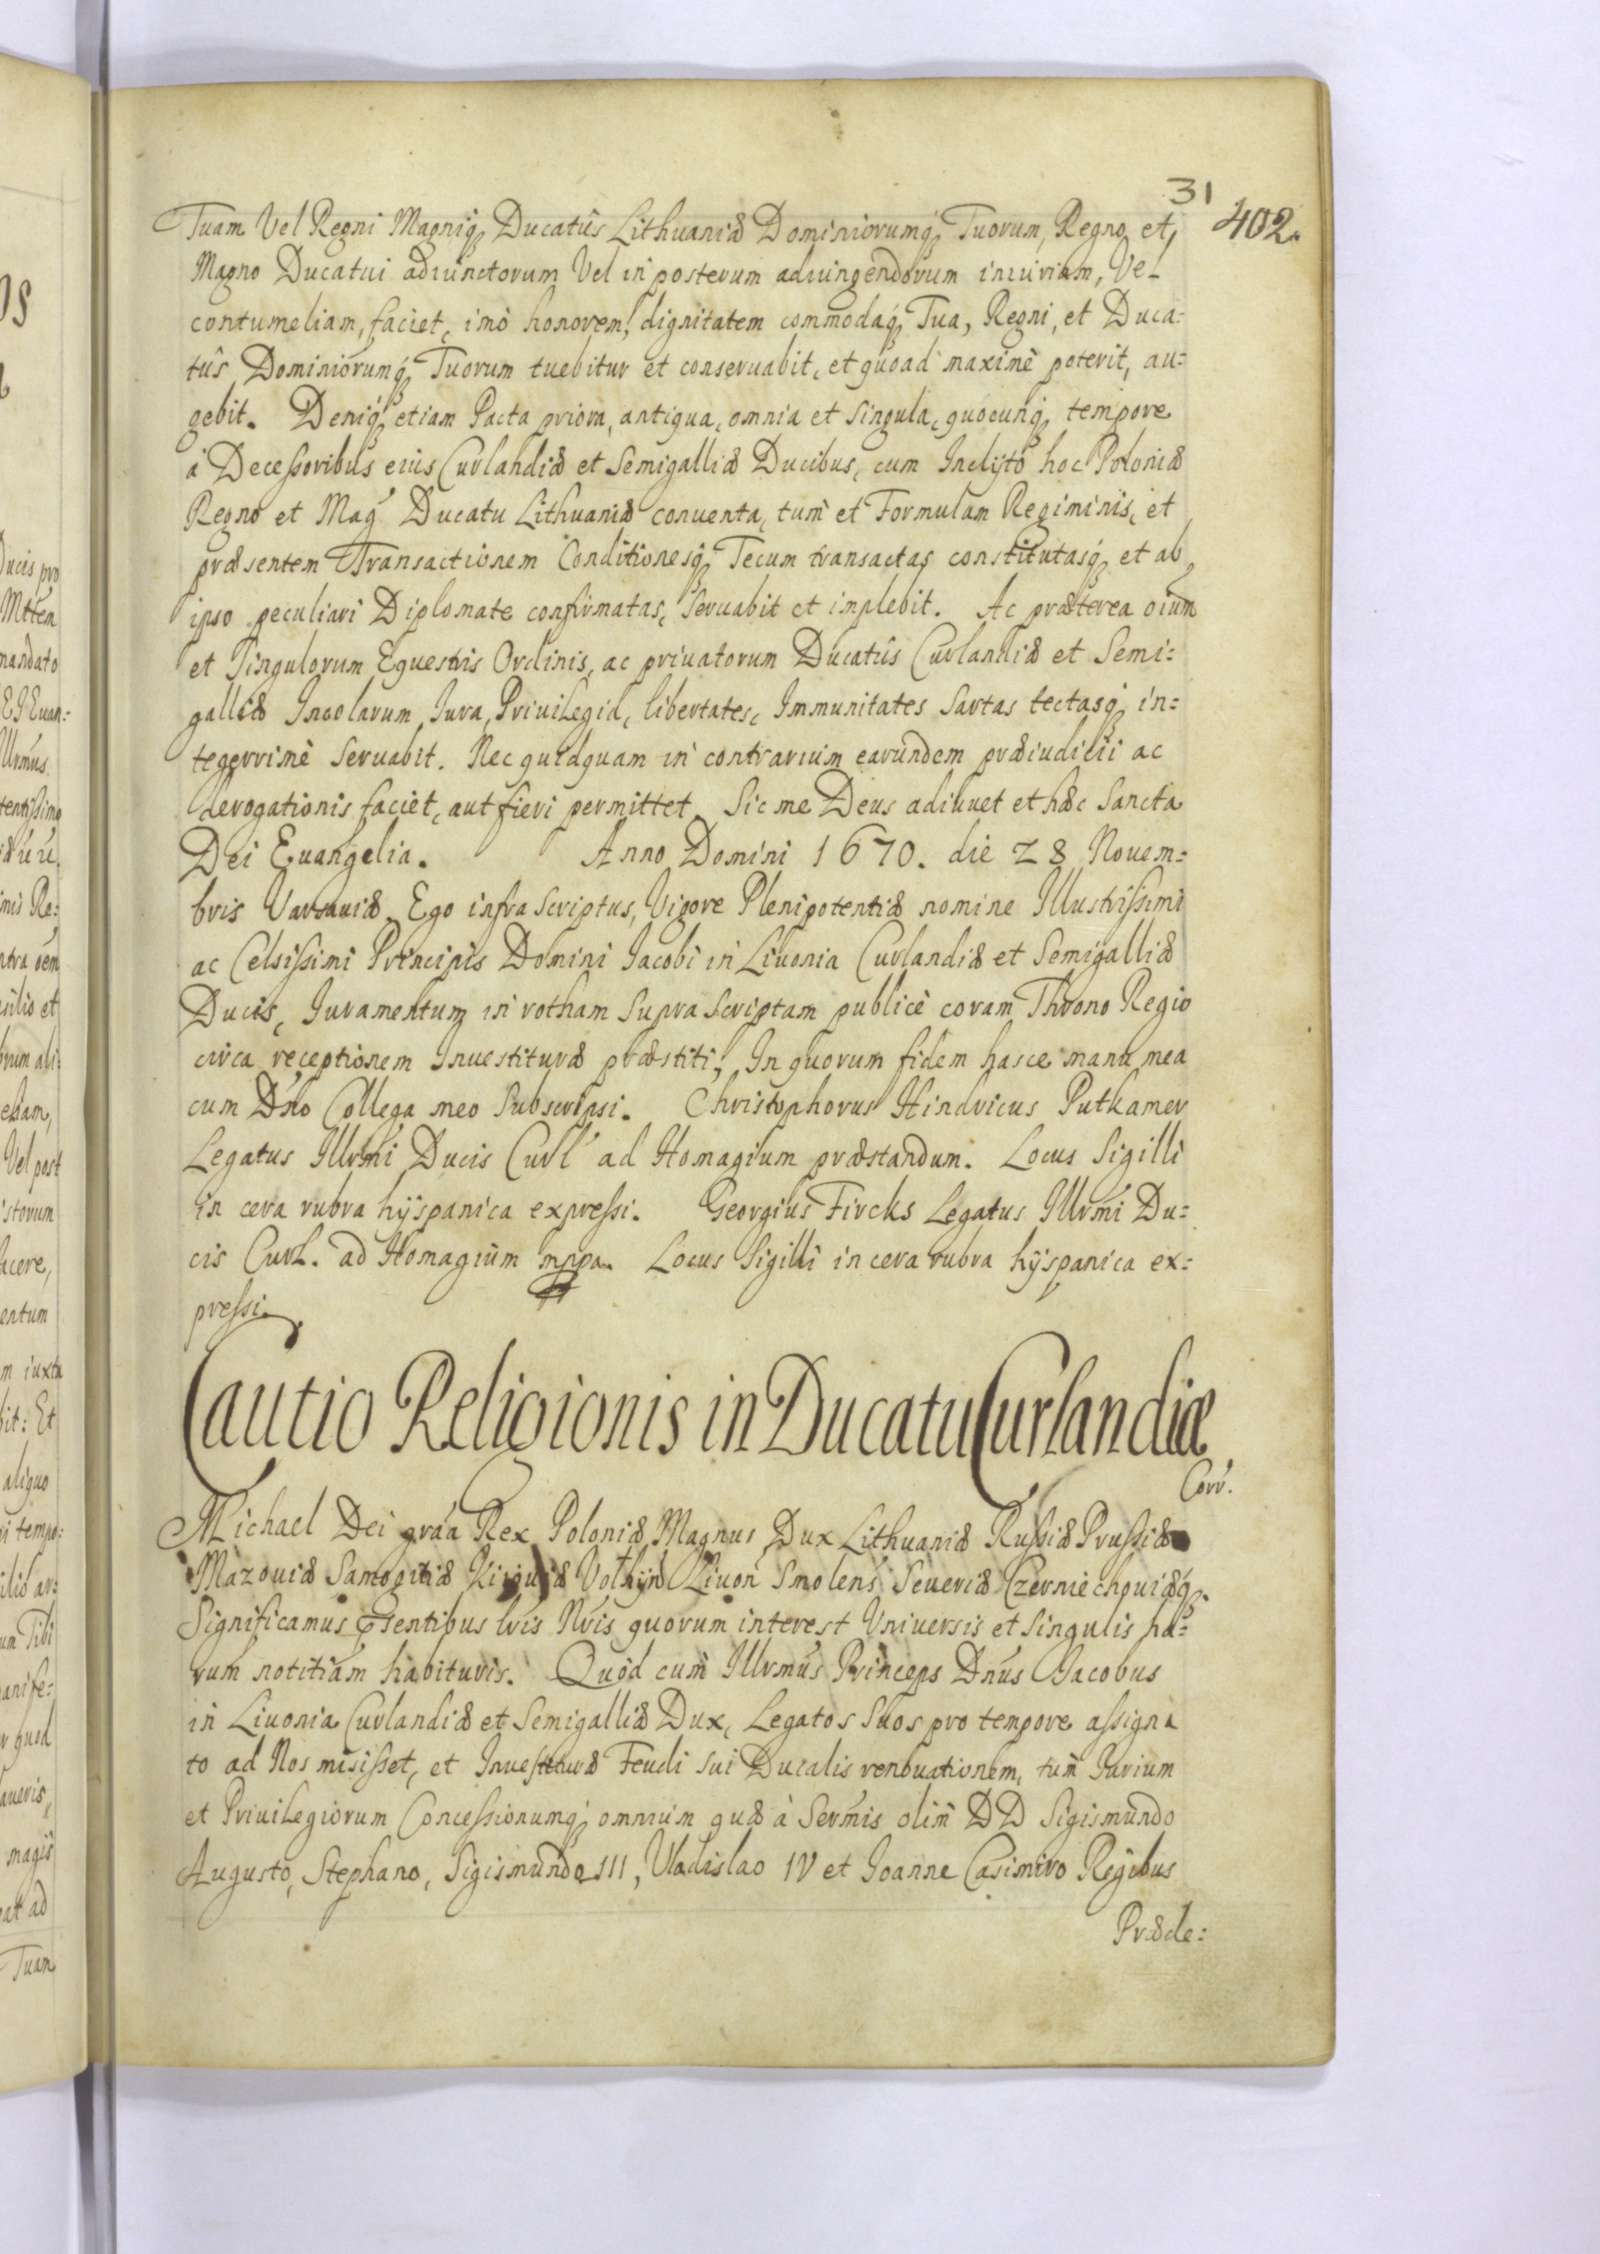 31
402.
Tuam Vel Regni Magniq; Ducatûs Lithuaniæ Dominiorumq; Tuorum, Regno et
Magno Ducatui adiunctorum Vel in posterum adiungendorum iniuriam, Ve-
contumeliam, faciet, imò honorem, dignitatem commodaq; Tua, Regni, et Duca:
tûs Dominiorumq; Tuorum tuebitur et conseruabit, et quoad maximè poterit, au:
gebit. Deniq; etiam Pacta priora, antiqua, omnia et singula, quocunq; tempore
à Decessoribus eius Curlandiæ et Semigalliæ Ducibus, cum Inclyto hoc Poloniæ
Regno et Mag Ducatu Lithuaniæ conuenta, tum et Formulam Regiminis, et
præsentem Transactionem Conditionesq; Tecum transactas constitutasq; et ab
ipso peculiari Diplomate confirmatas, seruabit et implebit. Ac præterea oium
et singulorum Equestris Ordinis, ac priuatorum Ducatûs Curlandiæ et Semi:
galliæ Incolarum Iura, Priuilegia, libertates, Immunitates sartas tectasq; in:
tegerrimè seruabit. Nec quidquam in contrarium earundem præiudicii ac
derogationis faciet, aut fieri permittet. Sic me Deus adiuuet et hæc Sancta
Dei Euangelia. Anno Domini 1670. die 28 Nouem:
bris Varsauiæ. Ego infra scriptus, Vigore Plenipotentiæ nomine Illustrissimi
ac Celsissimi Principis Domini Iacobi in Liuonia Curlandiæ et Semigalliæ
Ducis, Iuramentum in rotham supra scriptam publicè coram Throno Regio
circa receptionem Inuestituræ præstiti, In quorum fidem hasce manu mea
cum Dno Collega meo subscripsi. Christophorus Hindricus Putkamer
Legatus Illrmi Ducis Curl ad Homagium præstandum. Locus Sigilli
in cera rubra hÿspanica expressi. Georgius Fircks Legatus Illrmi Du:
cis Curl. ad Homagium mppa. Locus Sigilli in cera rubra hÿspanica ex:
pressi.
Cautio Religionis in Ducatu Curlandiæ
Corr.
Michael Dei graa Rex Poloniæ Magnus Dux Lithuaniæ Russiæ Prussiæ
Mazouiæ Samogitiæ Kiiouiæ Volhÿn Liuon Smolens Seueriæ Czerniechouiæq;
Significamus Psentibus lris Nris quorum interest Vniuersis et singulis ha:
rum notitiam habituris. Quòd cum Illrmus Princeps Dnus Iacobus
in Liuonia Curlandiæ et Semigalliæ Dux, Legatos suos pro tempore assigna
to ad Nos misisset, et Inuestituræ Feudi sui Ducalis renouationem, tum Iurium
et Priuilegiorum Concessionumq; omnium quæ à Sermis olim DD Sigismundo
Augusto, Stephano, Sigismundo III, Vladislao IV et Joanne Casimiro Regibus
Præde: